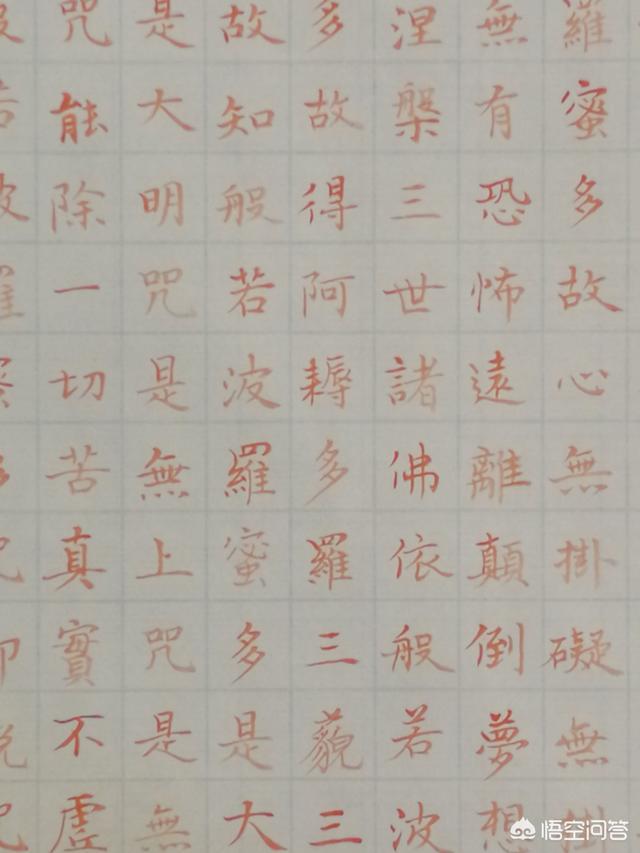 羅蜜多故心無掛礙無掛
無有恐怖遠離顛倒夢想
涅槃三世諸佛依般若波
多故得阿耨多羅三藐三
故知般若波羅蜜多是大
是大明咒是無上咒是無
咒能除一切苦真實不虛
悟空问答